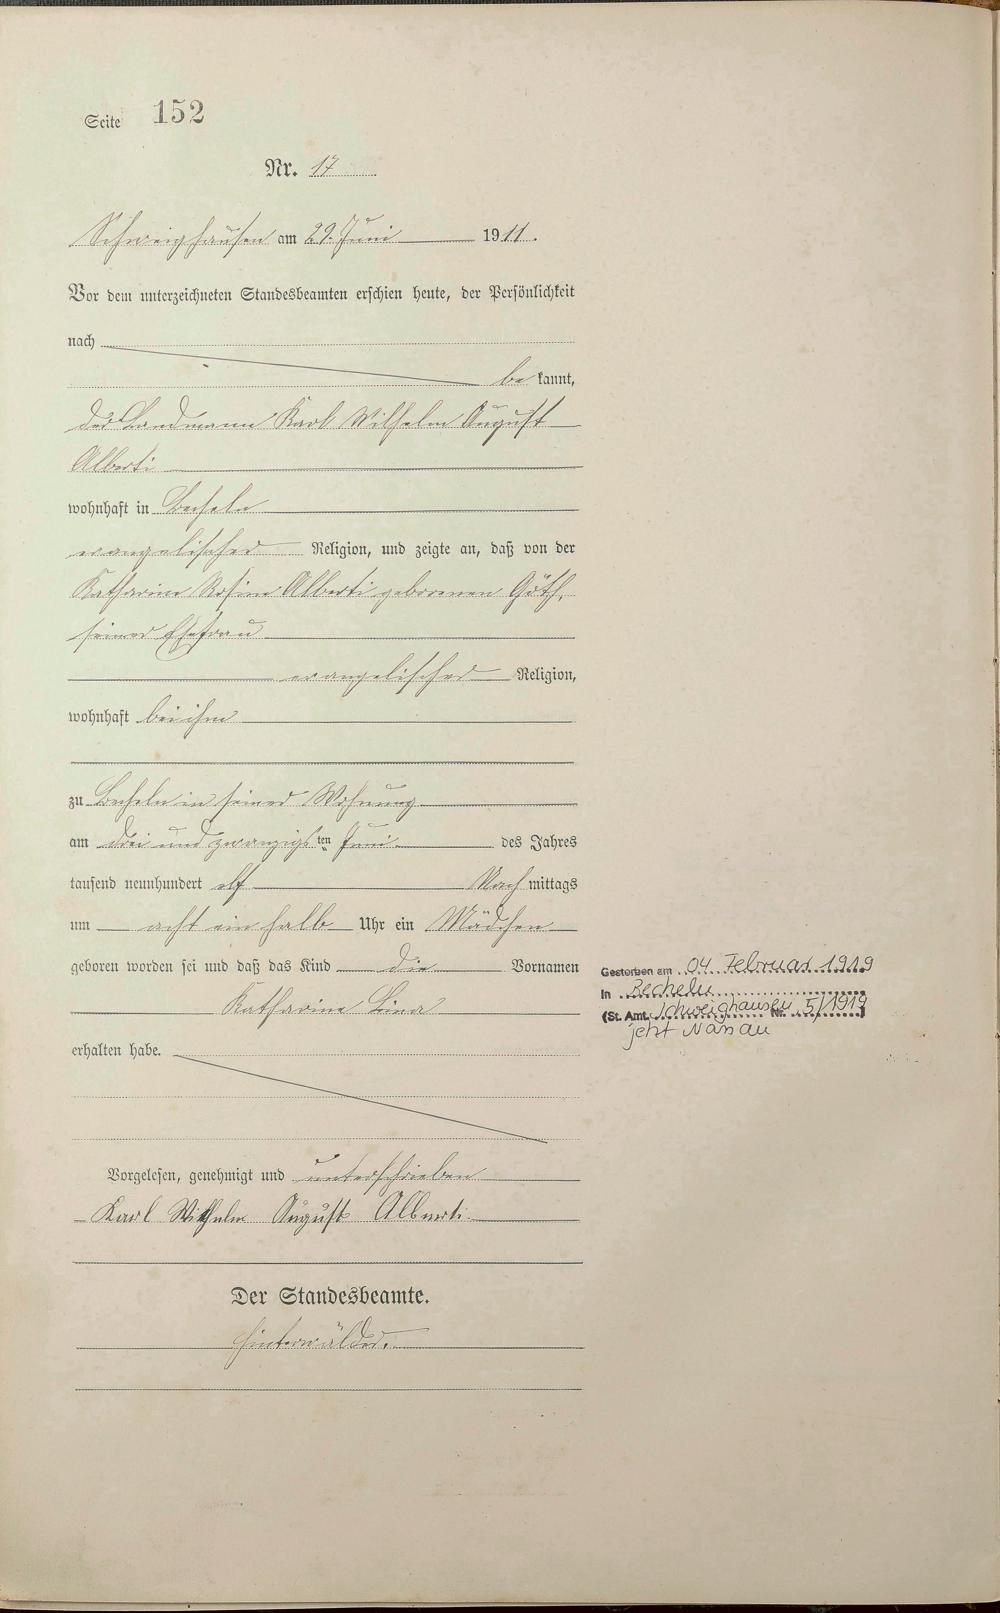 Seite 152
Nr. 17
Schweighausen am 29. Juni 1911.
Vor dem unterzeichneten Standesbeamten erschien heute, der Persönlichkeit
nach
be kannt,
der Landmann Karl Wilhelm August
Alberti
wohnhaft in Becheln
evangelischer Religion, und zeigte an, daß von der
Katharine Rosine Alberti geborenen Göth,
seiner Ehefrau
evangelischer Religion,
wohnhaft bei ihm
zu Becheln in seiner Wohnung
am drei und zwanzigs ten Juni des Jahres
tausend neunhundert elf Nach mittags
um acht ein halb Uhr ein Mädchen
geboren worden sei und daß das Kind die Vornamen
Katharine Lina
erhalten habe.
Gestorben am 04 Februar 1919
In Becheln
(St. Amt. Schweighausen Nr. 5/1919)
jetzt Nassau
Vorgelesen, genehmigt und unterschrieben
Karl Wilhelm August Alberti
Der Standesbeamte.
Hinterwälder.